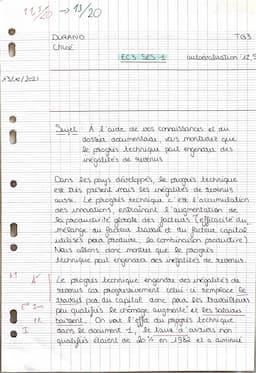 11,5/20 → 13/20
DURAND TG3
Chloé
EC3 SES 1 autoévaluation 12,5
Sujet À l'aide de vos connaissances et du
dossier documentaire, vous montrerez que
le progrès technique peut engendrer des
inégalités de revenus
Dans les pays développés, le progrès technique
est très présent mais les inégalités de revenus
aussi. Le progrès technique c'est l'accumulation
des innovations, entraînant l'augmentation de
la productivité globale des facteurs (efficacité du
mélange du facteur travail et du facteur capital
utilisés pour produire, la combinaison productive)
Nous allons donc montrer que le progrès
technique peut engendrer des inégalités de revenus.
Le progrès technique engendre des inégalités de
revenus car progressivement celui ci remplace le
travail par du capital donc pour les travailleurs
peu qualifiés le chômage augmente et les salaires
baissent. On voit l'effet du progrès technique
dans le document 1, le taux d'ouvriers non
qualifiés étaient de 20% en 1982 et a diminué